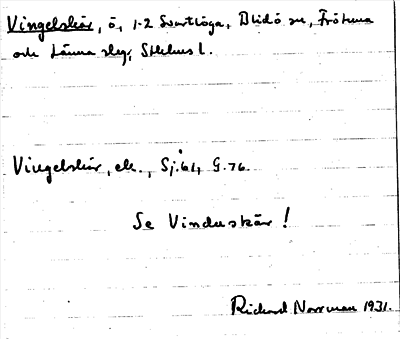 Vingelskär, ö, 1-2 Svartlöga, Blidö sn, Frötuna
och Länna slg, Sthlms l.
Vingelskär, ek., Sj. 61, G. 76.
Se Vinduskär!
Richard Norrman 1931.